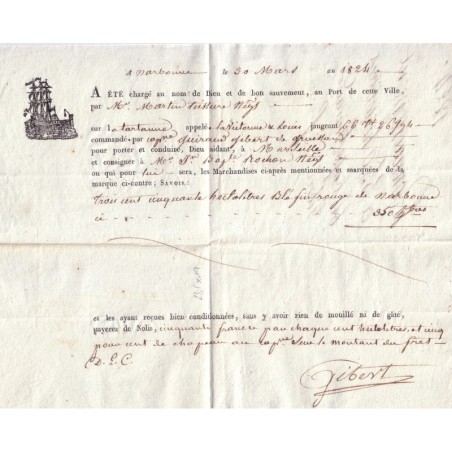 A Narbonne le 30 Mars an 1824
A ÉTÉ chargé au nom de Dieu et de bon sauvement, au Port de cette Ville,
par Mr. Martin Négt
sur la tartanne appelé la Victorine & Louis jaugeant 66 Tx 26/94
commandé par capne Guiraud Gibert de Gruissan
pour porter et conduire, Dieu aidant, à Marseille
et consigner à Mr. Bapte Rochon Négt
ou qui pour lui sera, les Marchandises ci-après mentionnées et marquées de la
marque ci-contre; SAVOIR:
Trois cent cinquante hectolitres Blé fin rouge de Narbonne
ci 350
et les ayant reçues bien conditionnées, sans y avoir rien de mouillé ni de gâté,
payerez de Nolis, cinquante francs par chaque cent hectolitres, et cinq
pour cent de chapeau au capne sur le montant du fret
D.E.C.
Gibert